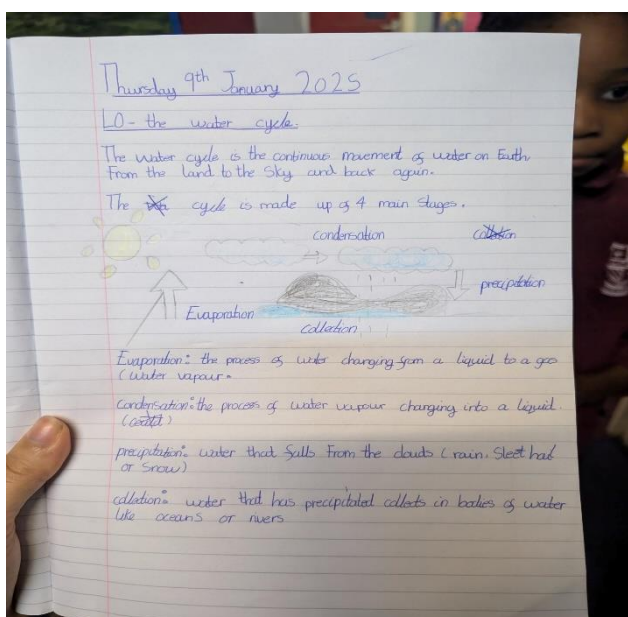 Thursday 9th January 2025
LO - the water cycle.
The water cycle is the continuous movement of water on Earth
From the land to the Sky and back again.
The cycle is made up of 4 main stages.
condensation
precipitation
Evaporation
collection
Evaporation: the process of water changing from a liquid to a gas
(water vapour.
Condensation: the process of water vapour changing into a liquid.
precipitation: water that falls From the clouds (rain, Sleet hail
or Snow)
collection: water that has precipitated collects in bodies of water
like oceans or rivers